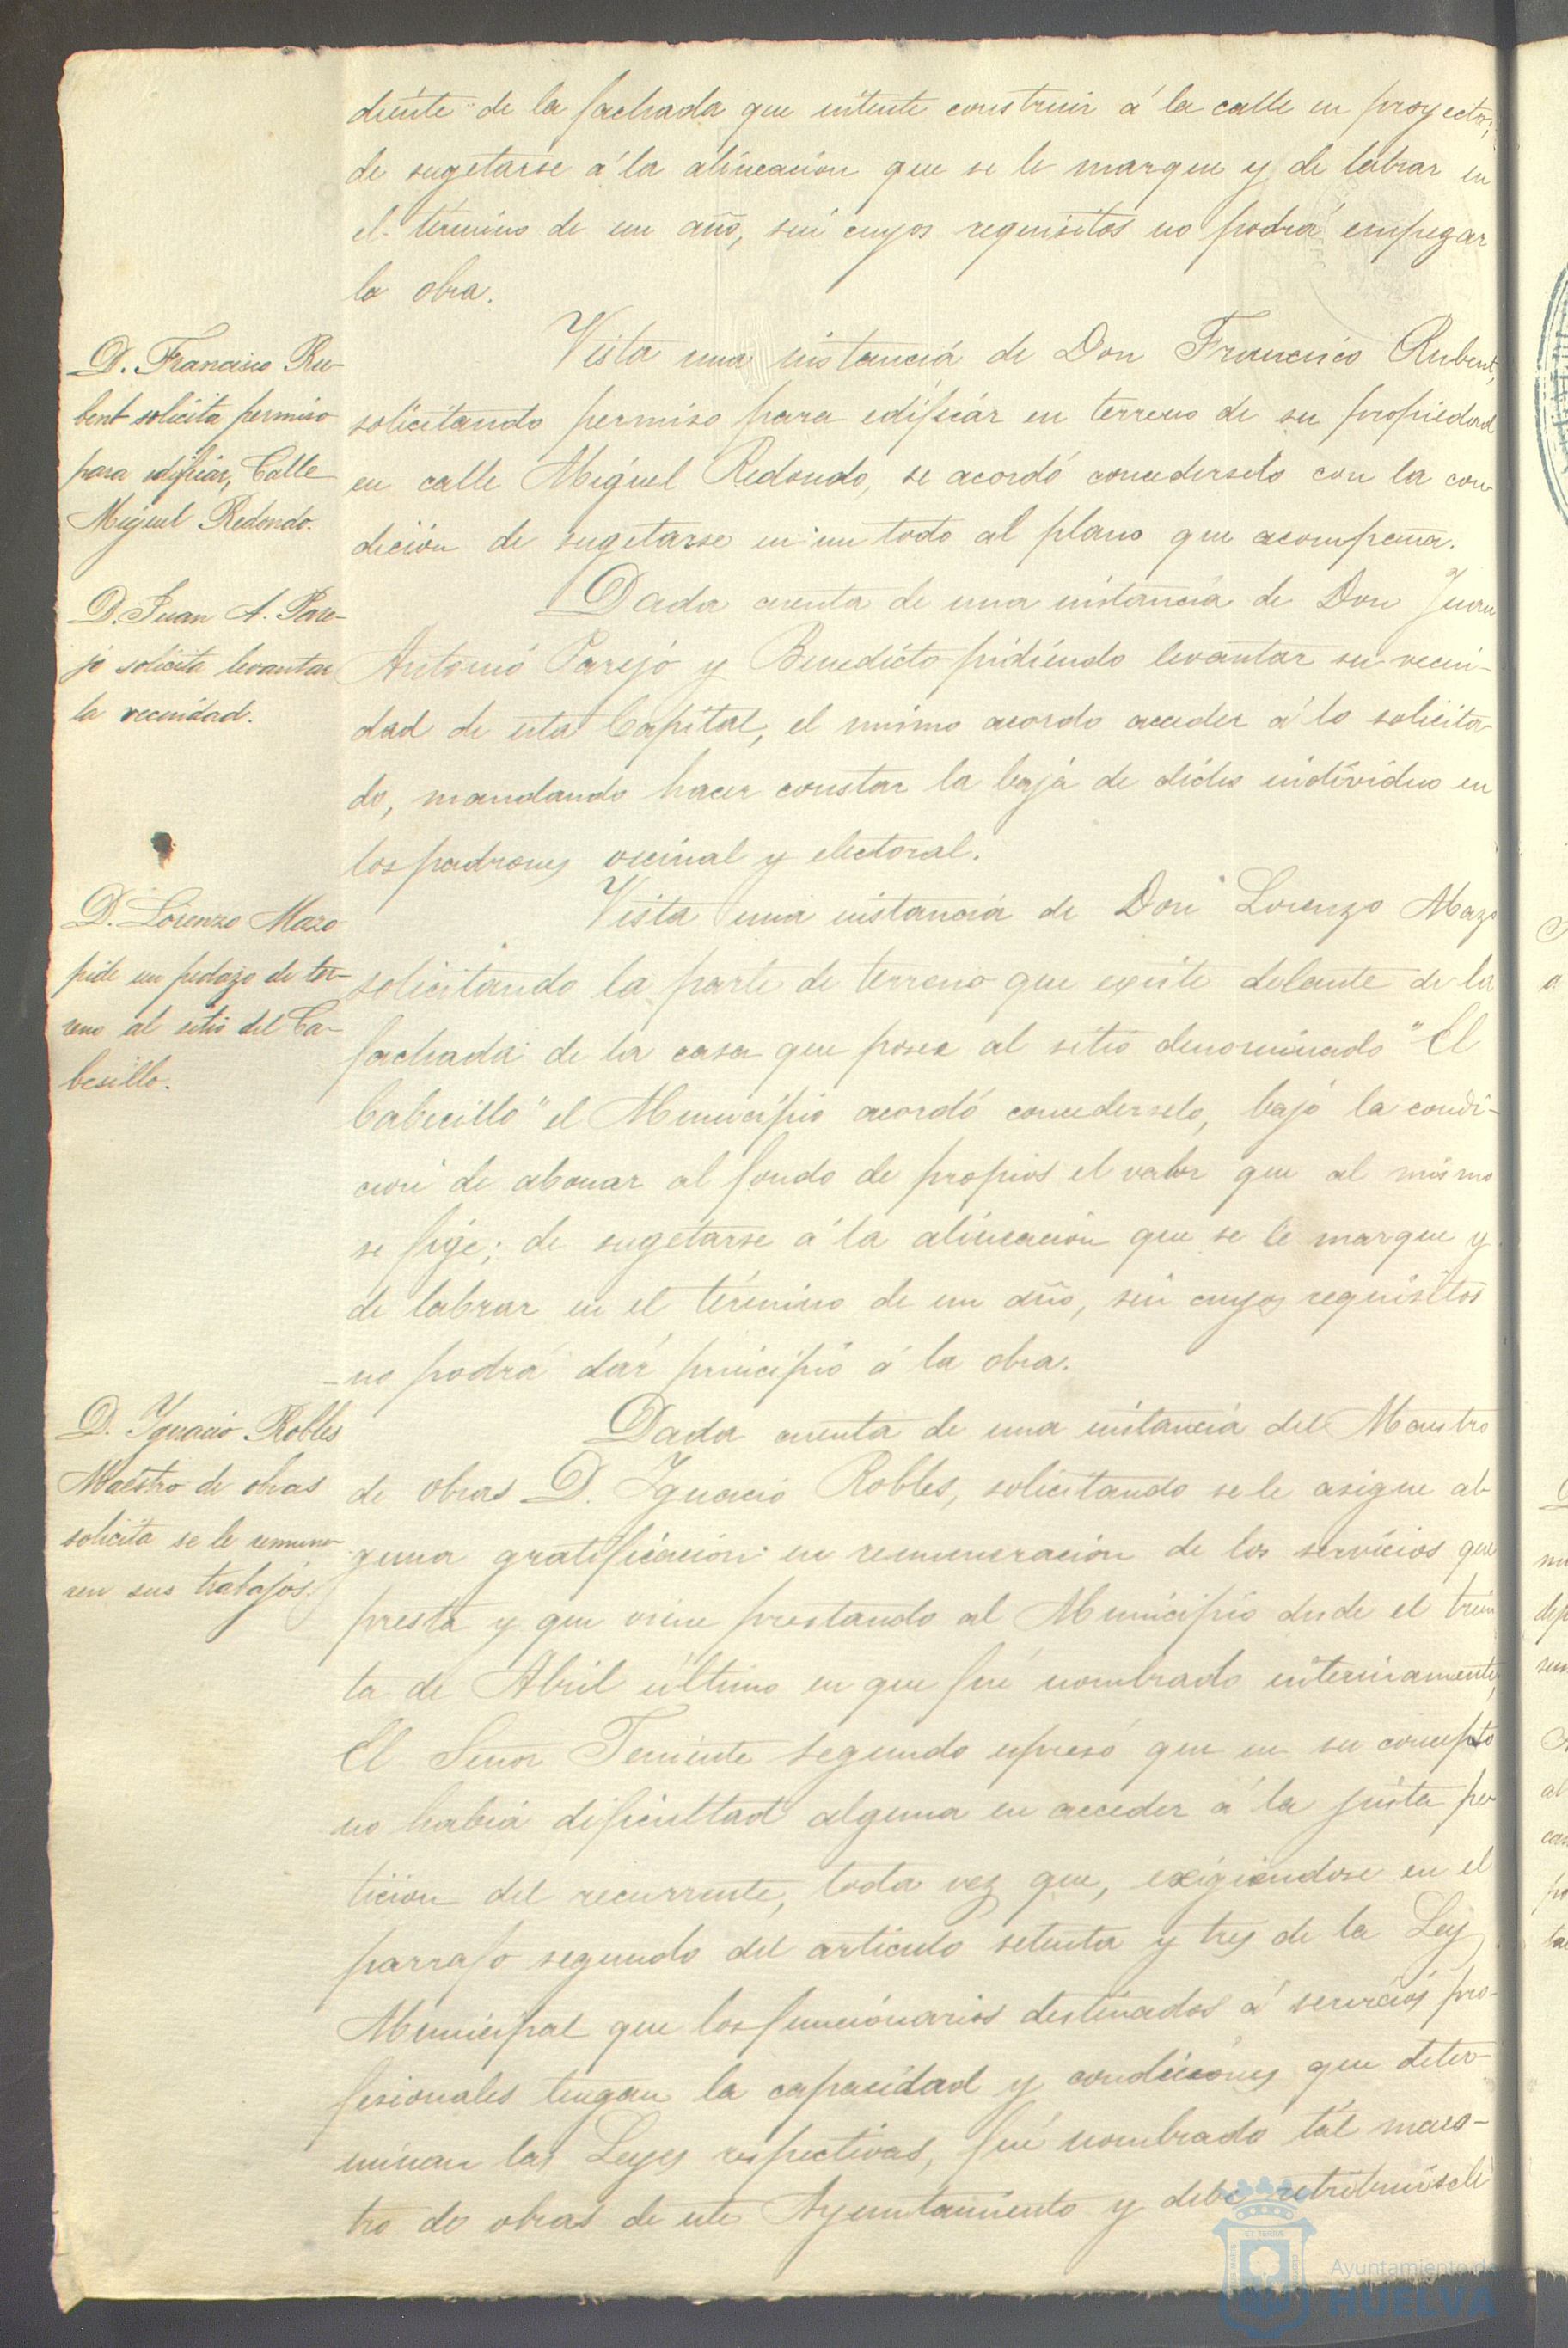 diente de la fachada que intente construir á la calle en proyecto;
de sugetarse á la alineación que se le marque y de labrar en
el término de un año, sin cuyos requisitos no podrá empezar
la obra.
D. Francisco Ru-
bent solicita permiso
para edificar, Calle
Miguel Redondo.
Vista una instancia de Don Francisco Rubent,
solicitando permiso para edificar en terreno de su propiedad
en calle Miguel Redondo, se acordó concederselo con la con
dición de sugetarse en un todo al plano que acompaña.
D. Juan A. Pare-
jo solicita levantar
la vecindad.
Dada cuenta de una instancia de Don Juan
Antonio Parejo y Benedicto pidiendo levantar su vecin-
dad de esta Capital, el mismo acordo acceder á lo solicita-
do, mandando hacer constar la baja de dicho individuo en
los padrones vecinal y electoral.
D. Lorenzo Mazo
pide un pedazo de ter-
reno al sitio del Ca-
besillo.
Vista una instancia de Don Lorenzo Mazo
solicitando la parte de terreno que existe delante de la
fachada de la casa que posee al sitio denominado "El
Cabecillo" el Municipio acordó concederselo, bajo la condi-
cion de abonar al fondo de propios el valor que al mismo
se fije; de sugetarse á la alineación que se le marque y
de labrar en el término de un año, sin cuyos requisitos
no podrá dar principio á la obra.
D. Ignacio Robles
Maestro de obras
solicita se le remune-
ren sus trabajos.
Dada cuenta de una instancia del Maestro
de obras D. Ignacio Robles, solicitando se le asigne al-
guna gratificación en remuneración de los servicios que
presta y que viene prestando al Municipio desde el trein
ta de Abril último en que fué nombrado interinamente,
El Señor Teniente segundo espresó que en su concepto
no habia dificultad alguna en acceder á la justa pe
ticion del recurrente, toda vez que, exigiendose en el
parrafo segundo del articulo setenta y tres de la Ley
Municipal que los funcionarios destinados á servicios pro-
fesionales tengan la capacidad y condiciones que deter-
minan las Leyes respectivas, fué nombrado tal maes-
tro de obras de este Ayuntamiento y debe retribuirsele
Ayuntamiento de
HUELVA